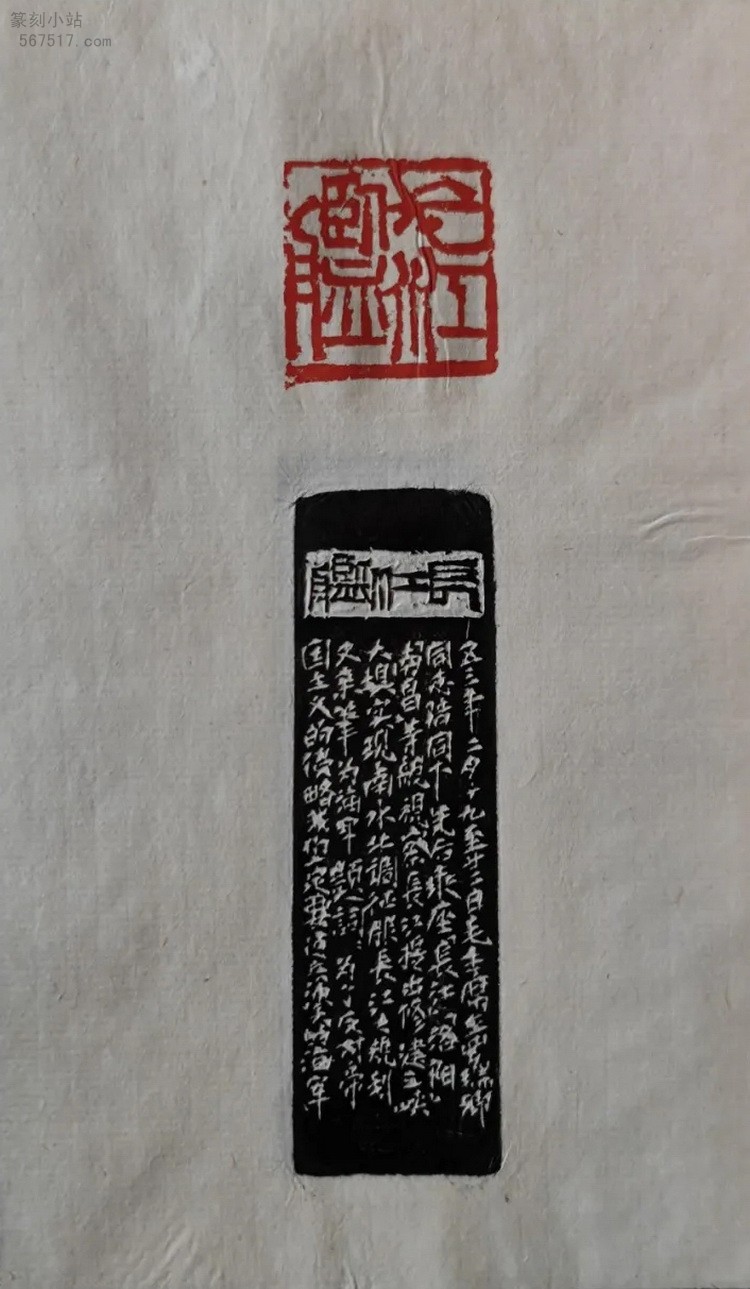 篆刻小站
567517.com
長江艦
長江艦
五三年二月十九至廿二日毛主席在罗瑞卿
同志陪同下先后乘座“長江”“洛阳”
“南昌”等舰視察長江提出修建三峡
大坝实现南水北調征服長江之規划
又亲筆为海军題詞：为了反对帝
国主义的侵略我们一定要建立強大的海军